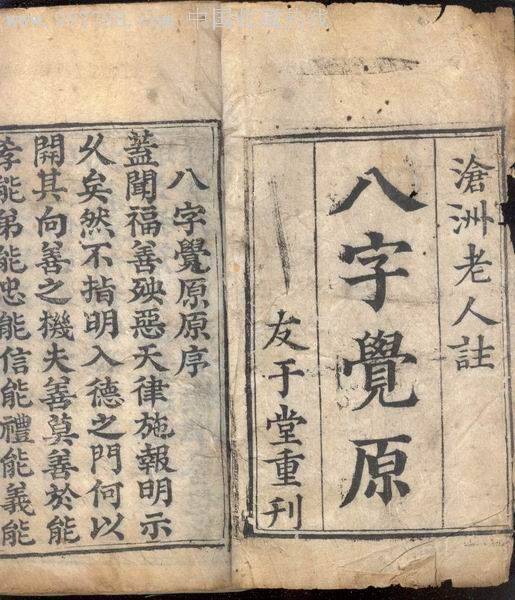 滄洲老人註
八字覺原
友于堂重刊
八字覺原原序
蓋聞福善殃惡天律施報明示
久矣然不指明入德之門何以
開其向善之機夫善莫善於能
孝能弟能忠能信能禮能義能
中国收藏热线